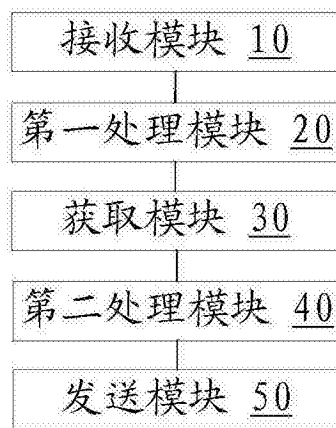 接收模块 10
第一处理模块 20
获取模块 30
第二处理模块 40
发送模块 50